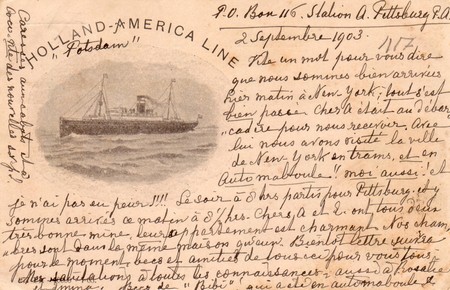 P.O. Box 116. Station A. Pittsburg P.A.
2 Septembre 1903.
HOLLAND-AMERICA LINE
"Potsdam"
Vite un mot pour vous dire
que nous sommes bien arrivés
hier matin à New-York; tout s'est
bien passé. Cher A était au débar-
cadère pour nous recevoir. Avec
lui nous avons visité la ville
de New-York en trams, et en
Automaboule! moi aussi! et
je n'ai pas eu peur!!!! Le soir à 8 hrs partis pour Pittsburg. où y
sommes arrivés ce matin à 8½ hrs. Chers A et L. ont tous deux
très bonne mine, leur appartement est charmant. Nos cham-
bres sont dans la même maison qu'eux. Bientôt lettre suivra
pour le moment, becs et amitiés de tous ici pour vous tous.
Mes salutations à toutes les connaissances, aussi à Rosalie
Becs de "Bibi" qui a été en automaboule &
Caresses aux
des nouvelles